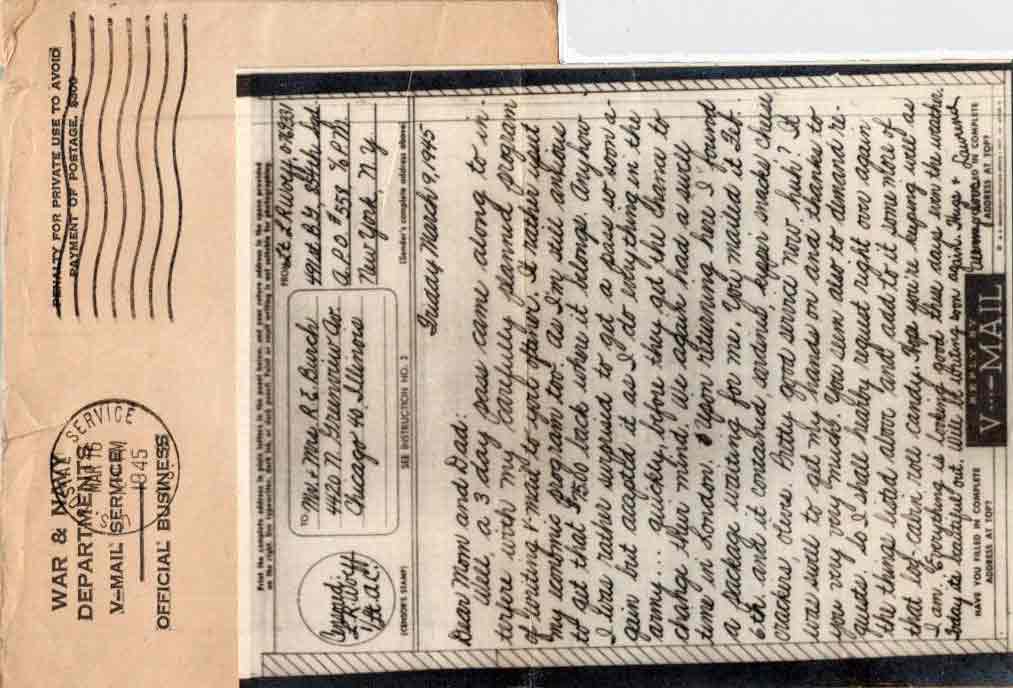 WAR & NAVY
DEPARTMENTS
V-MAIL SERVICE
OFFICIAL BUSINESS
SERVICE
MAR 16
PM
1945
PENALTY FOR PRIVATE USE TO AVOID
PAYMENT OF POSTAGE, $300
Print the complete address in plain letters in the panel below, and your return address in the space provided
on the right. Use typewriter, dark ink, or dark pencil. Faint or small writing is not suitable for photographing.
(CENSOR'S STAMP)
TO
Mr. & Mrs. R.E. Burch
4420 N. Greenview Ave.
Chicago 40, Illinois
SEE INSTRUCTION NO. 2
FROM
Lt. L.R.
491st B.G.
A.P.O. #558 % P.M.
New York, N.Y.
(Sender's complete address above)
Friday March 9, 1945
Dear Mom and Dad:
Well, a 3 day pass came along to in-
terfere with my carefully planned program
of writing & mail to go often. It rather upset
my economic program too. As I'm still anxious
to get that $75.00 back where it belongs. Anyhow
I was rather suprised to get a pass so soon a-
gain but accepted it as I do everything in the
army... quickly, before they get the chance to
change their mind. We again had a swell
time in London. Upon returning here I found
a package waiting for me. You mailed it Feb.
6th. and it contained sardines, kipper snacks, cheese
crackers olives. Pretty good service now huh? It
was swell to get my hands on and thanks to
you very very much. You seem also to demand re-
quests. so I shall really request right over again
the things listed above and add to it some more of
that log cabin roll candy. Hope you're keeping well as
I am. Everything is looking good these days even the weather.
Today its beautiful out. Will be writing soon again. Hugs &
HAVE YOU FILLED IN COMPLETE
ADDRESS AT TOP?
REPLY BY
V···—MAIL
HAVE YOU FILLED IN COMPLETE
ADDRESS AT TOP?